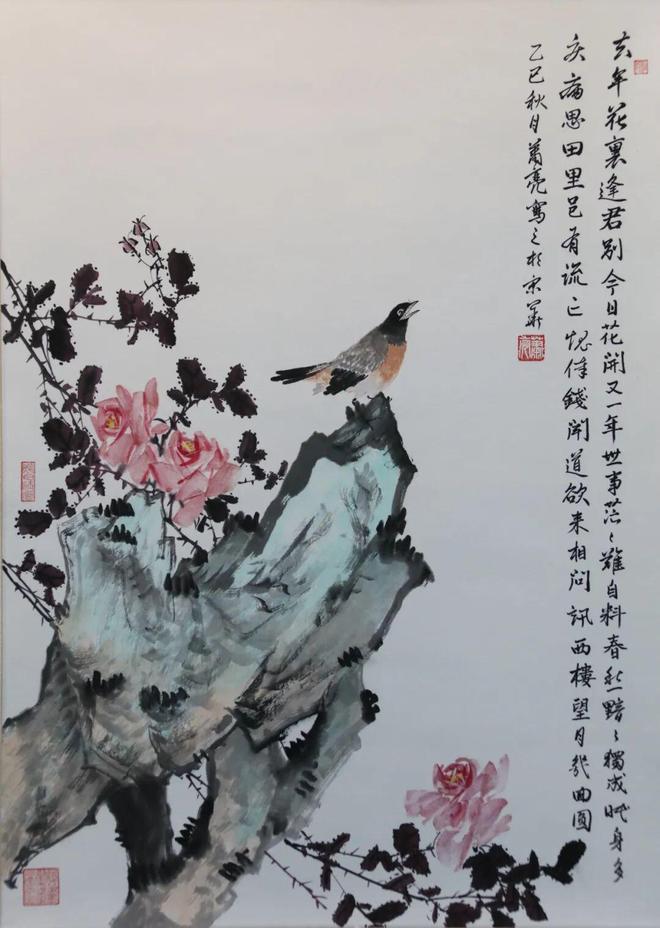 去年花裏逢君别今日花開又一年世事茫〻難自料春愁黯〻獨成眠身多
疾病思田里邑有流亡愧俸錢聞道欲来相问訊西樓望月幾回圓
乙巳秋月蕭亮寫之於京華